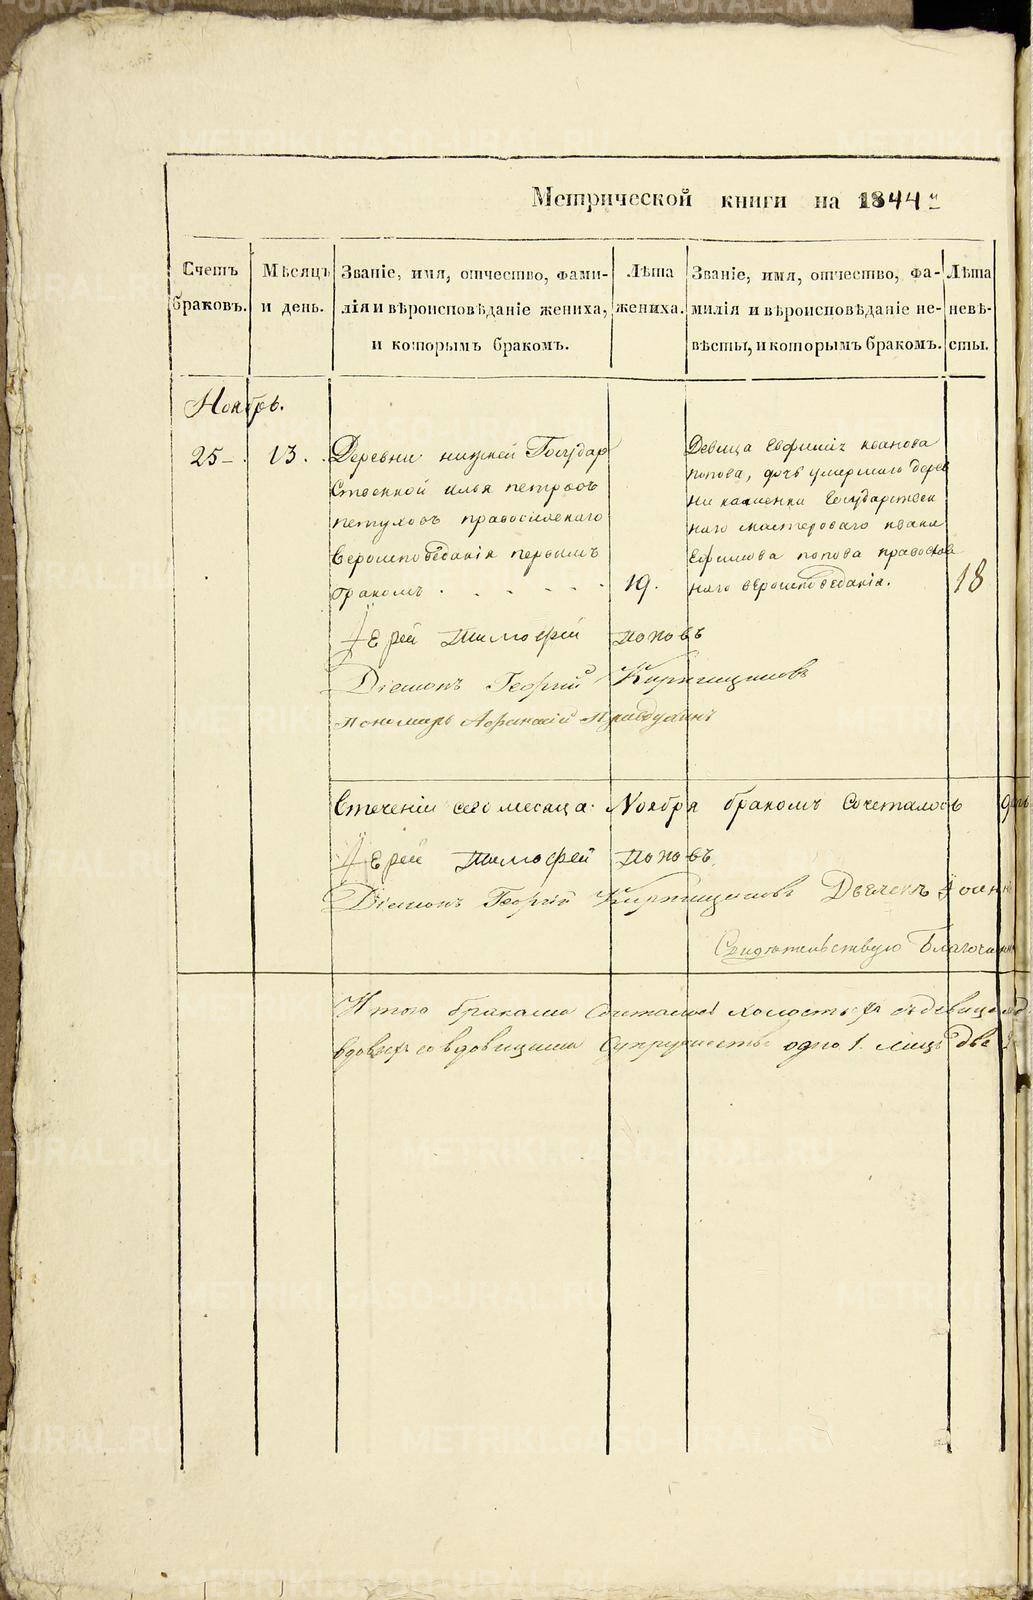 Метрической книги на 1844
Счетъ браковъ.
Мѣсяцъ и день.
Званіе, имя, отчество, фами-
лія и вѣроисповѣданіе жениха,
и которымъ бракомъ.
Лѣта
жениха.
Званіе, имя, отчество, фа-
милія и вѣроисповѣданіе не-
вѣсты, и которымъ бракомъ.
Лѣта
невѣ-
сты.
Ноябрь.
25
13.
Деревни нижней Государ
ственной илья петровъ
петуховъ православнаго
вероисповеданія первымъ
бракомъ
19.
Девица Евфимія иванова
попова, дочь умершаго дерев
ни каменки Государствен
наго мастероваго ивана
Ефимова попова православ
наго вероисповеданія.
18
Іерей Тимофей поповъ
Діаконъ Георгій Кирпищиковъ
пономарь Афанасій Правдухинъ
Втеченіи сего месяца Ноября бракомъ сочеталось
Іерей Тимофей поповъ
Діаконъ Георгій Кирпищиковъ Дьячекъ Іоанн
Свидѣтельствую Благочин
Итого браками сочеталось холостыхъ съ девицами
вдовыхъ со вдовицами супружество одно 1. лицъ две
METRIKI.GASO-URAL.RU